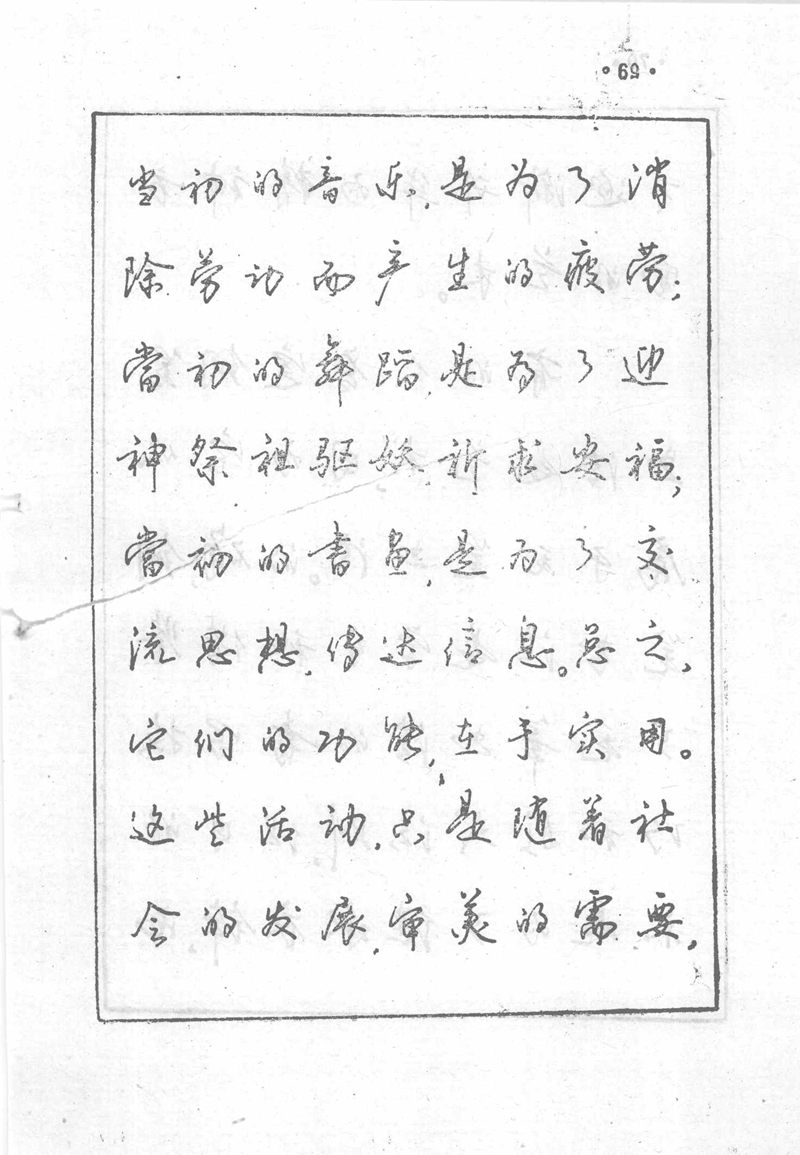 ·59·
当初的音乐,是为了消
除劳动而产生的疲劳;
當初的舞蹈,是为了迎
神祭祖驱妖,祈求安福;
當初的书画,是为了交
流思想,传达信息。总之,
它们的功能,在于实用。
这些活动,只是随着社
会的发展,审美的需要。